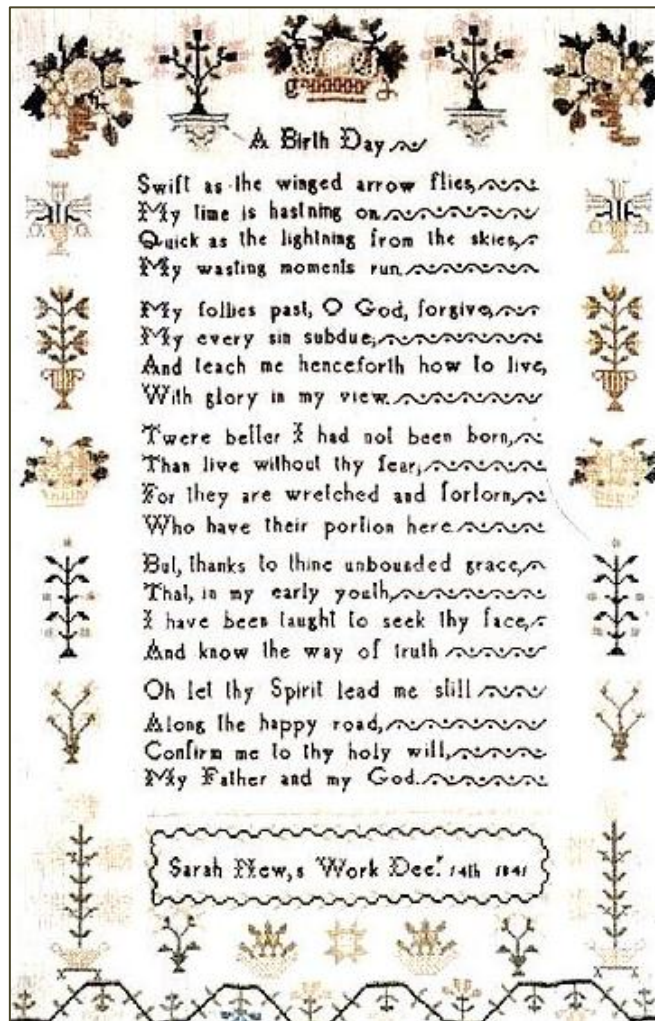 A Birth Day
Swift as the winged arrow flies,
My time is hastning on.
Quick as the lightning from the skies,
My wasting moments run.
My follies past, O God, forgive,
My every sin subdue,
And teach me henceforth how to live,
With glory in my view.
Twere better I had not been born,
Than live without thy fear,
For they are wretched and forlorn,
Who have their portion here.
But, thanks to thine unbounded grace,
That, in my early youth,
I have been taught to seek thy face,
And know the way of truth
Oh let thy Spirit lead me still
Along the happy road,
Confirm me to thy holy will,
My Father and my God.
Sarah New,s Work Dec.r 14th 1841